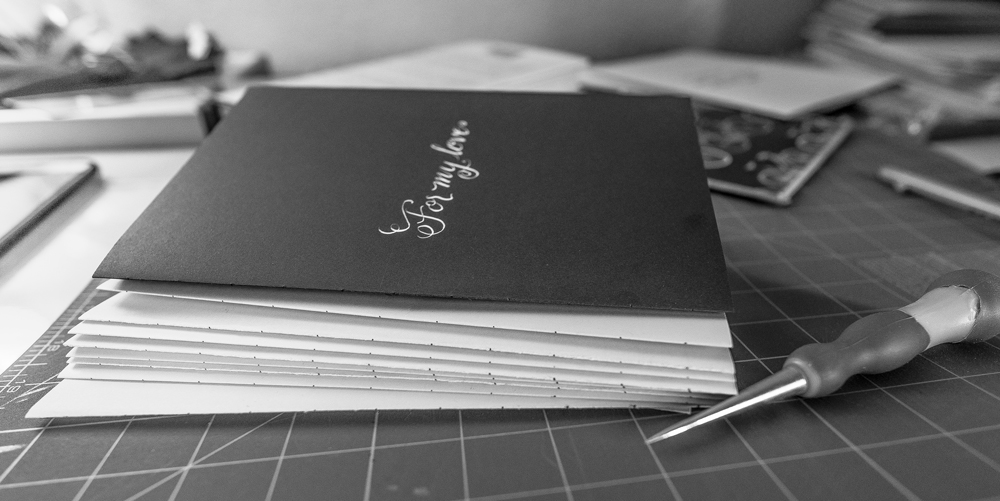 For my love.